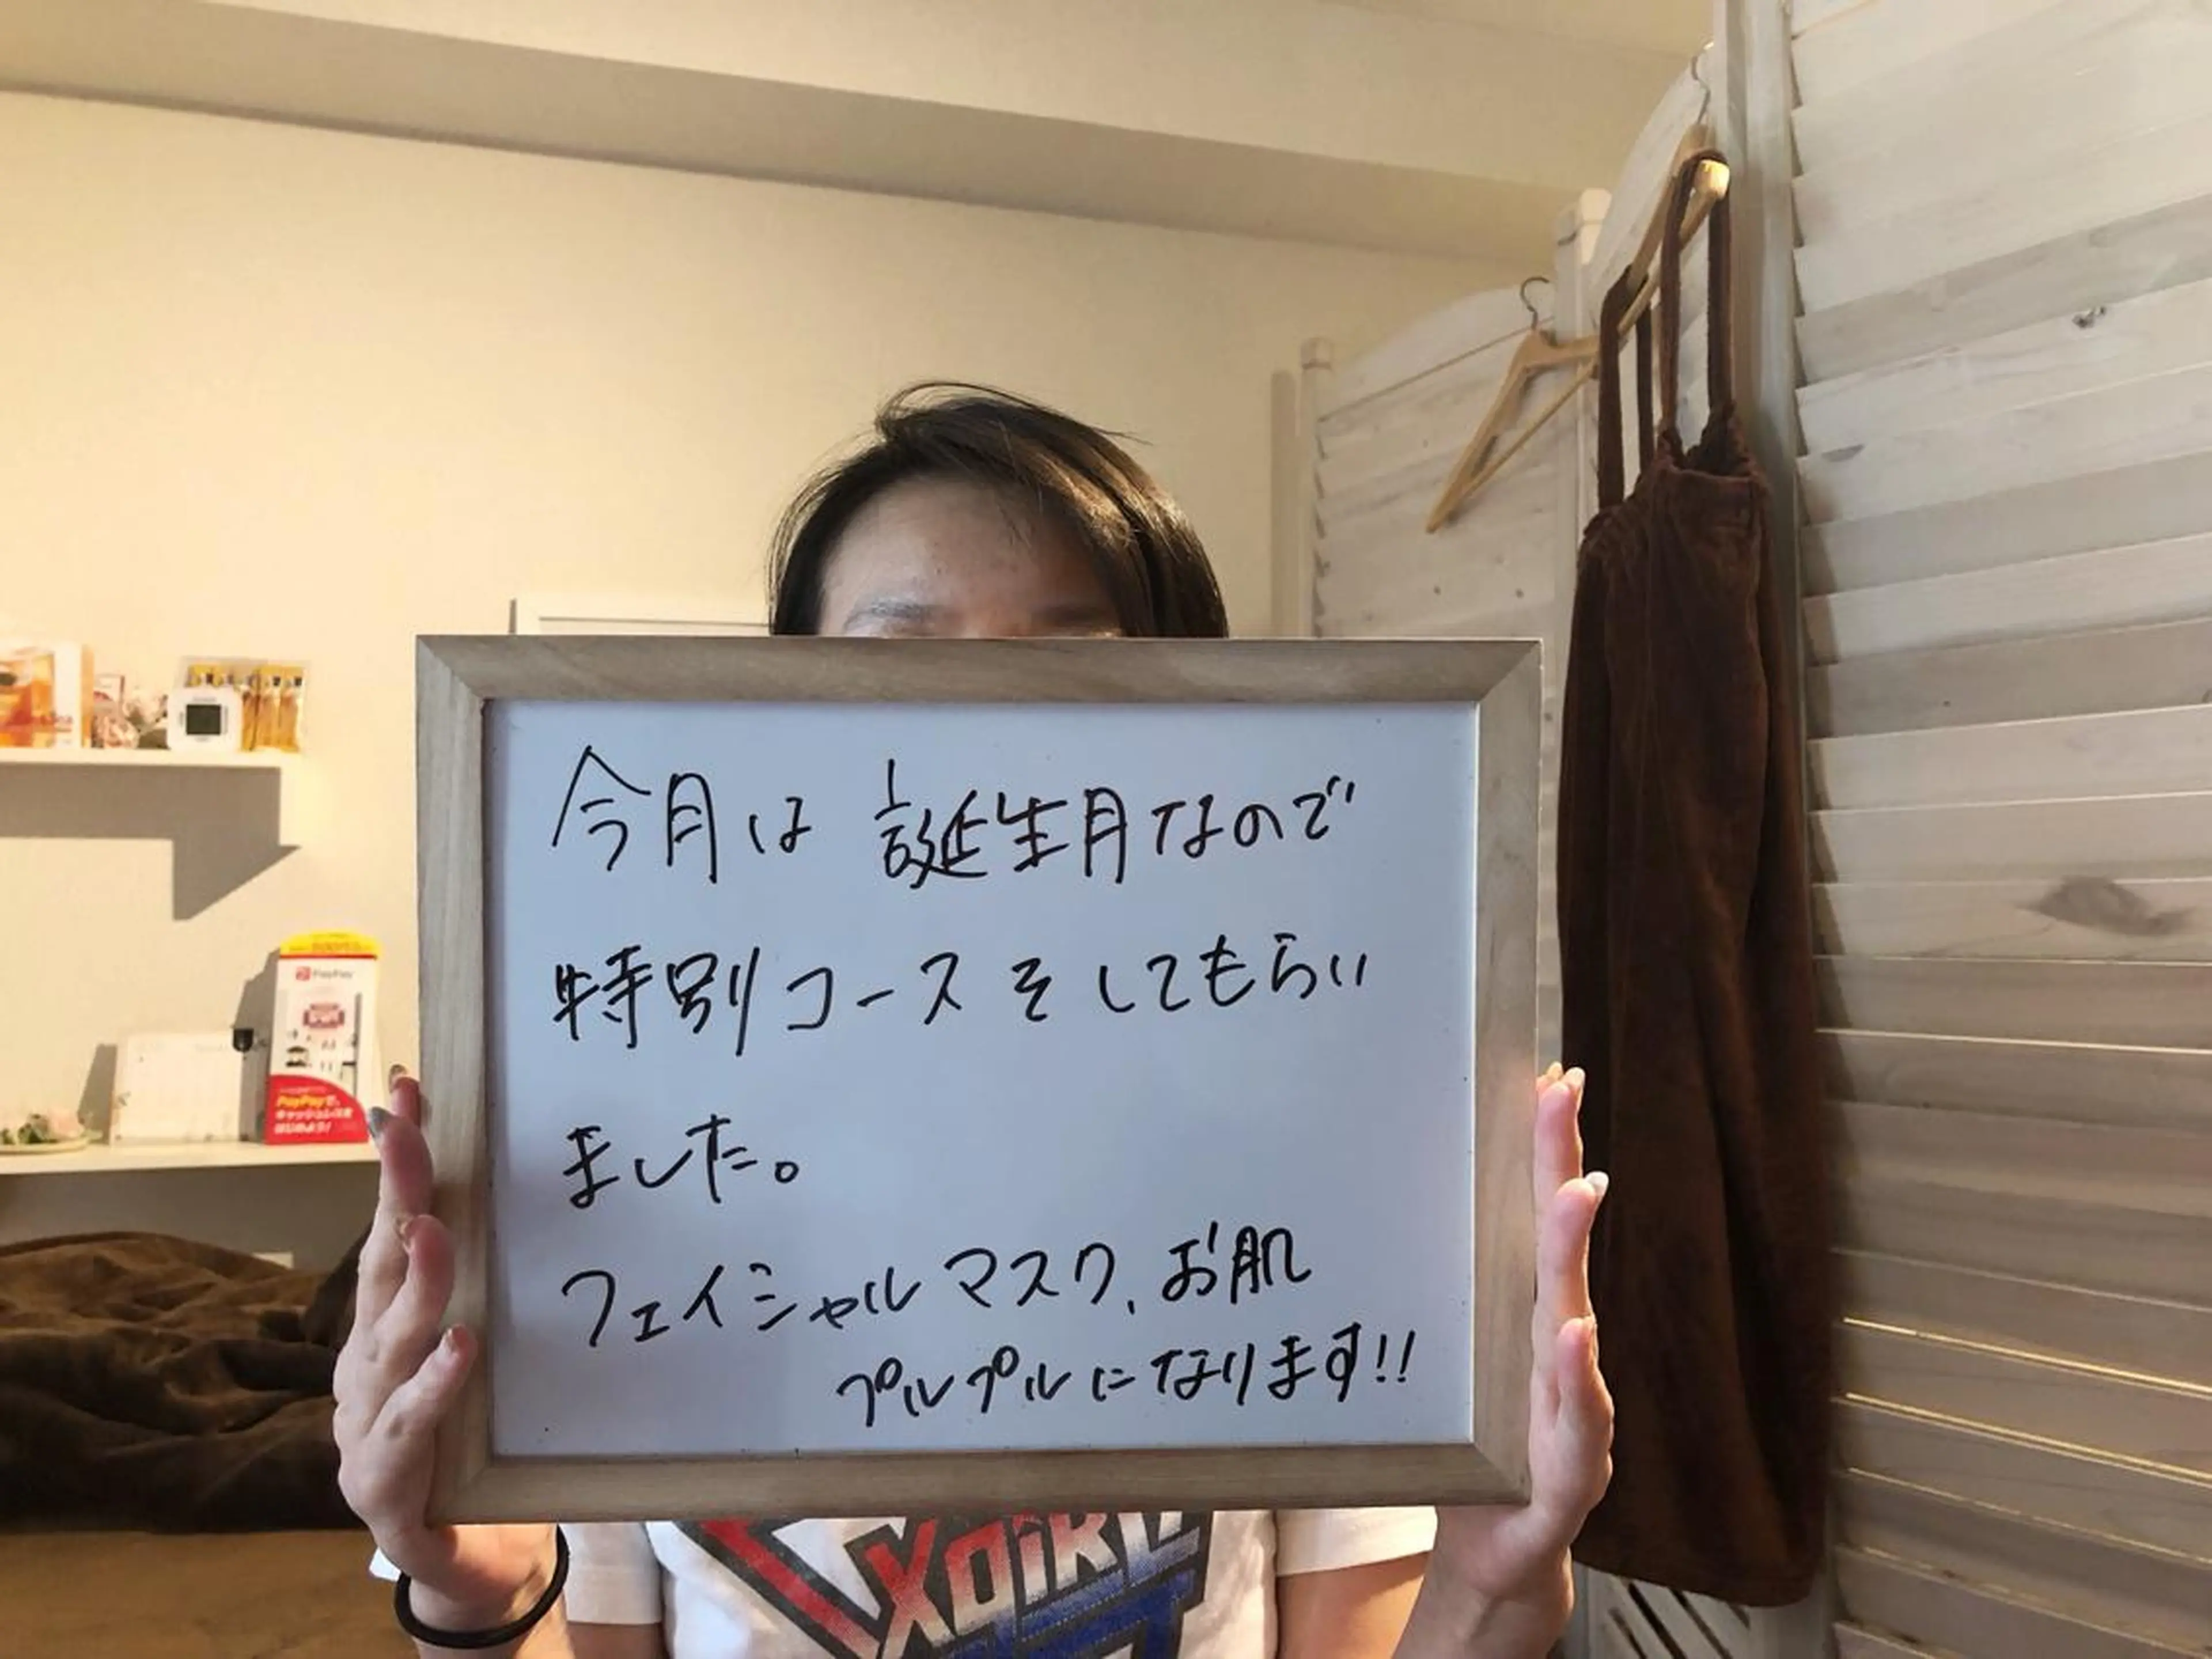 今月は 誕生月なので
特別コースをしてもらい
ました。
フェイシャルマスク、お肌
プルプルになります!!
PayPay
PayPayで、
キャッシュレスを
はじめよう!